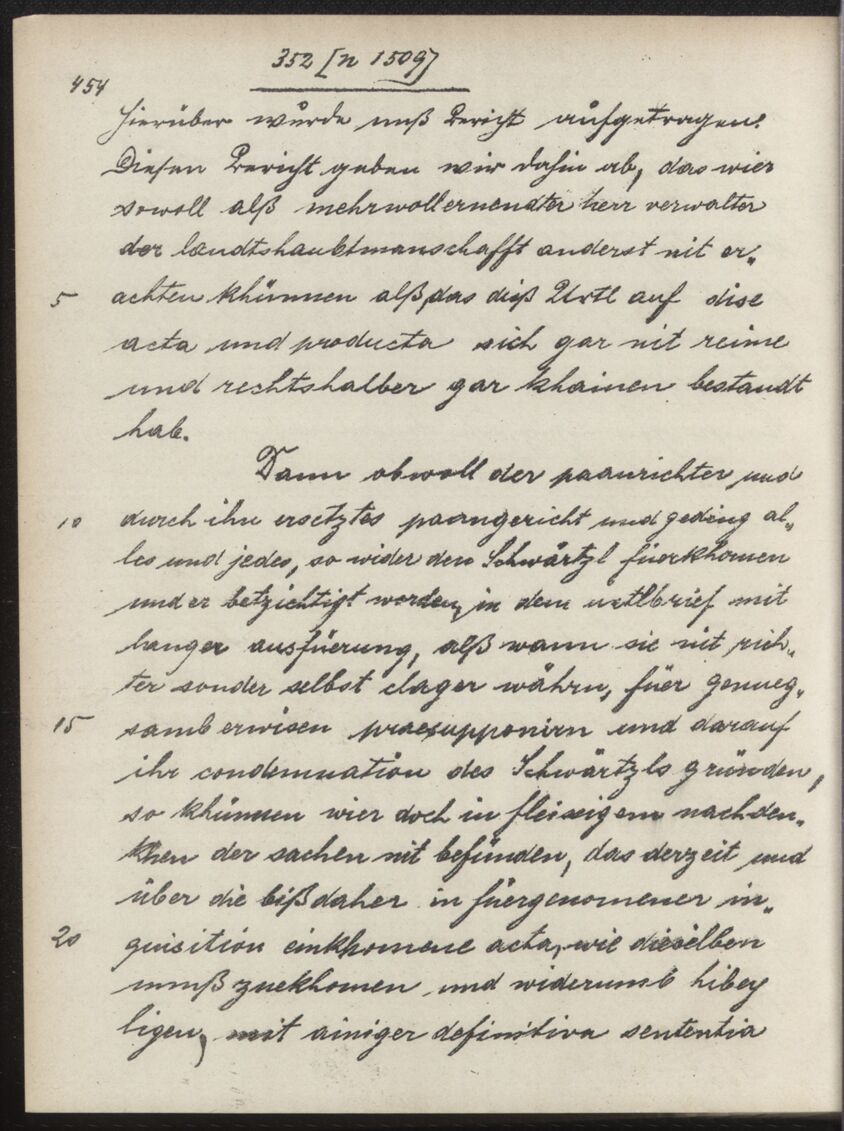 352 [n 1509]
454
hierüber wurde unß Bericht aufgetragen.
Diesen Bericht geben wir dahin ab, das wier
sowoll alß mehrwollernendter herr verwalter
der landtshaubtmanschafft anderst nit er„
5 achten khünnen alß, das diß Urtl auf dise
acta und producta sich gar nit reime
und rechtshalber gar khainen bestandt
hab.
Dann obwoll der paanrichter und
10 durch ihn ersetztes paangericht und geding al„
les und jedes, so wider den Schwärtzl füerkhomen
und er betzichtigt worden, in dem urtlbrief mit
langer ausfüerung, alß wann sie nit rich„
ter sonder selbst clager währn, füer genueg„
15 samb erwisen praesupponirn und darauf
ihr condemnation des Schwärtzls gründen,
so khünnen wier doch in fleisigem nachden„
khen der sachen nit befünden, das derzeit und
über die bißdaher in füergenomener in„
20 quisition einkhomene acta, wie dieselben
unnß zuekhomen und widerumb hibey
ligen, mit ainiger definitiva sententia